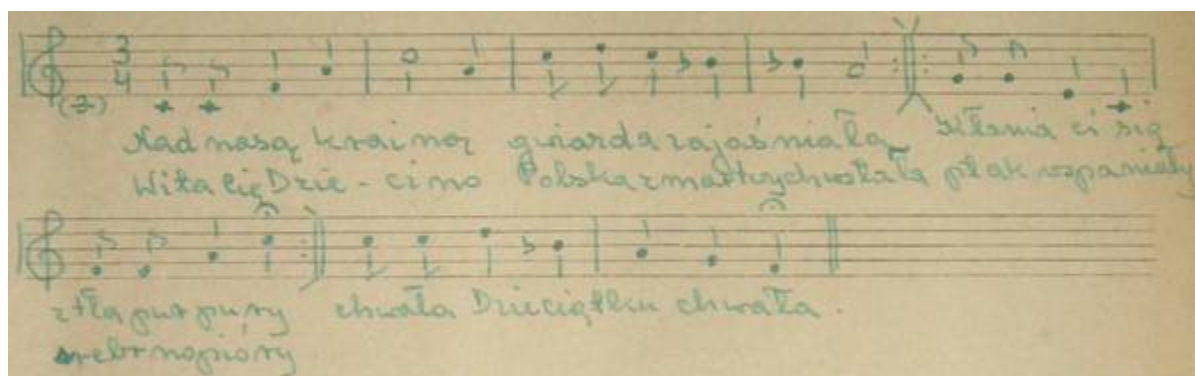 3
4
Nad nasą krainą gwiazda zajaśniała Kłania ci się
Wita Cię Dzie - cino Polska zmartwychwstała ptak wspaniały
z tła purpury chwała Dzieciątku chwała.
srebrnopióry